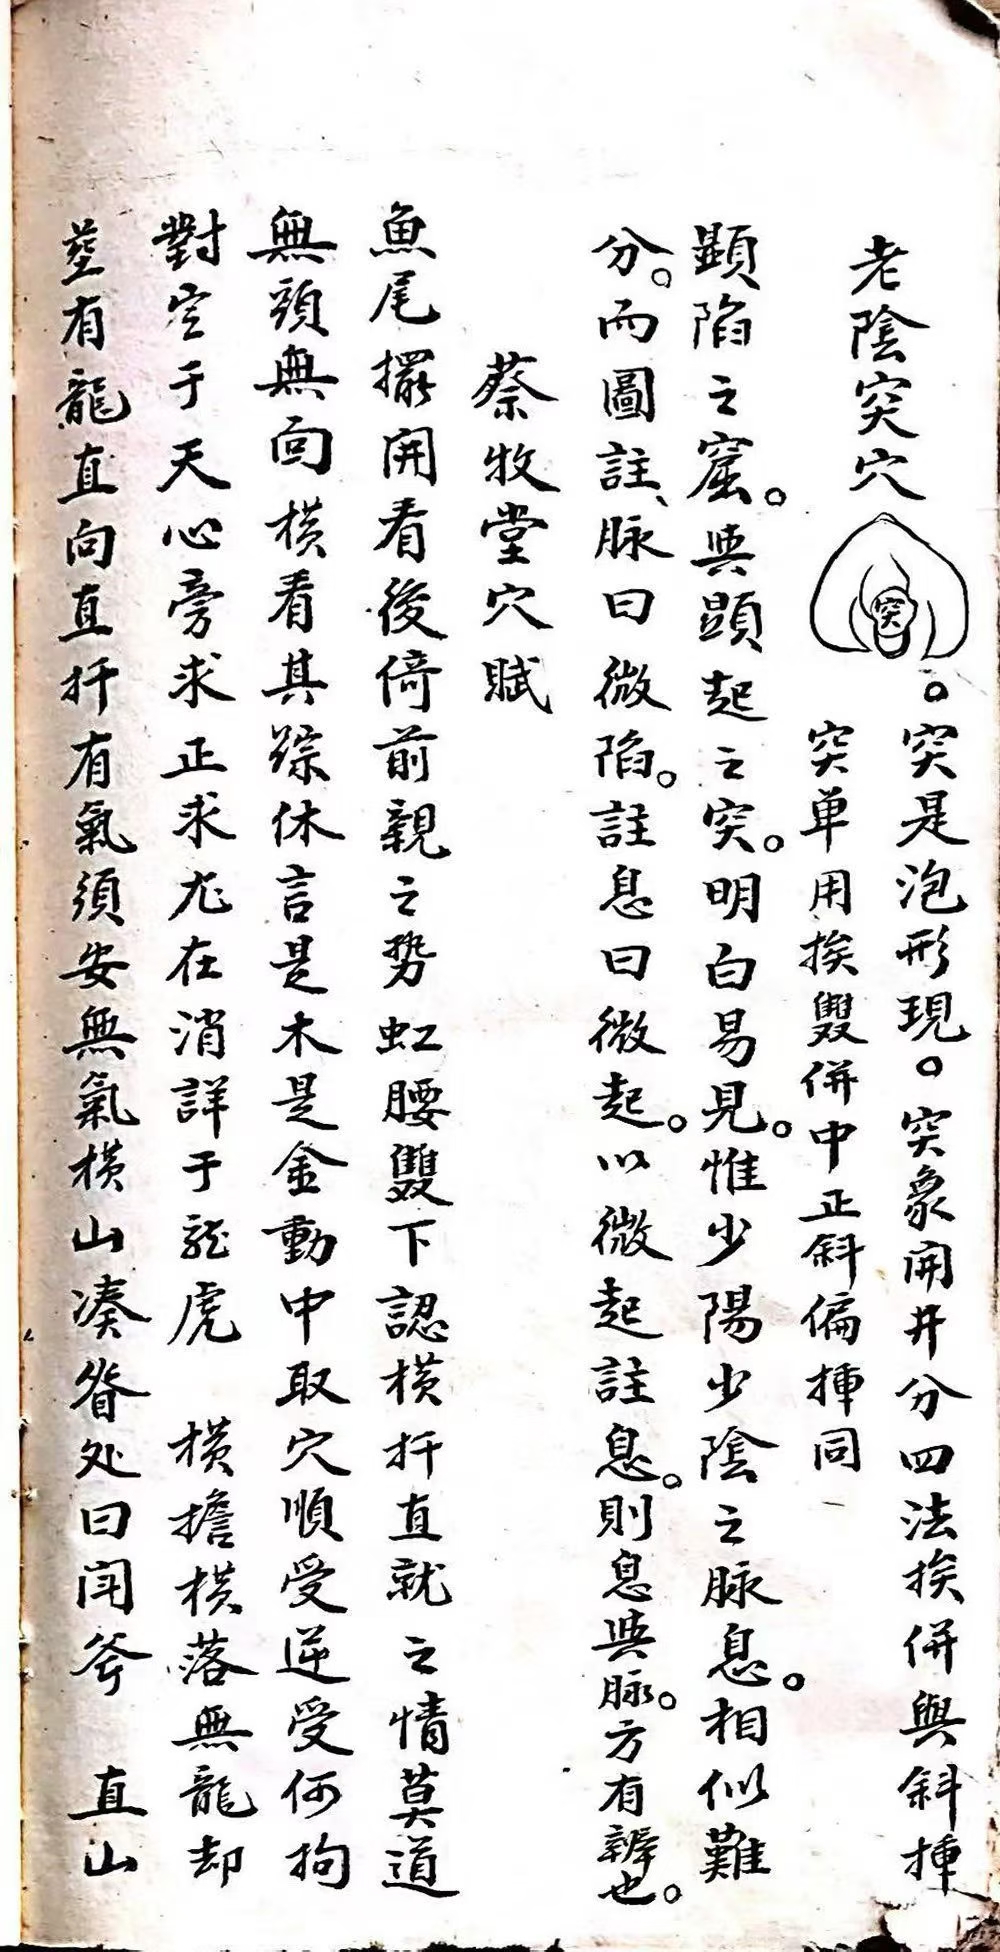 老陰突穴
突
。突是泡形現。突象開井分四法挨併與斜揷
突単用挨雙併中正斜偏揷同
顕陷之窟。與顕起之突。明白易見。惟少陽少陰之脉息。相似難
分。而圖註、脉曰微陷。註息曰微起。以微起註息。則息與脉。方有辨也。
蔡牧堂穴賦
魚尾擺開看後倚前親之势虹腰雙下認横扦直就之情莫道
無頭無面横看其踪休言是木是金動中取穴順受逆受何拘
對定于天心旁求正求尤在消詳于龍虎 横擔横落無龍却
葬有龍直向直扦有氣須安無氣横山凑脊处曰闬斧 直山